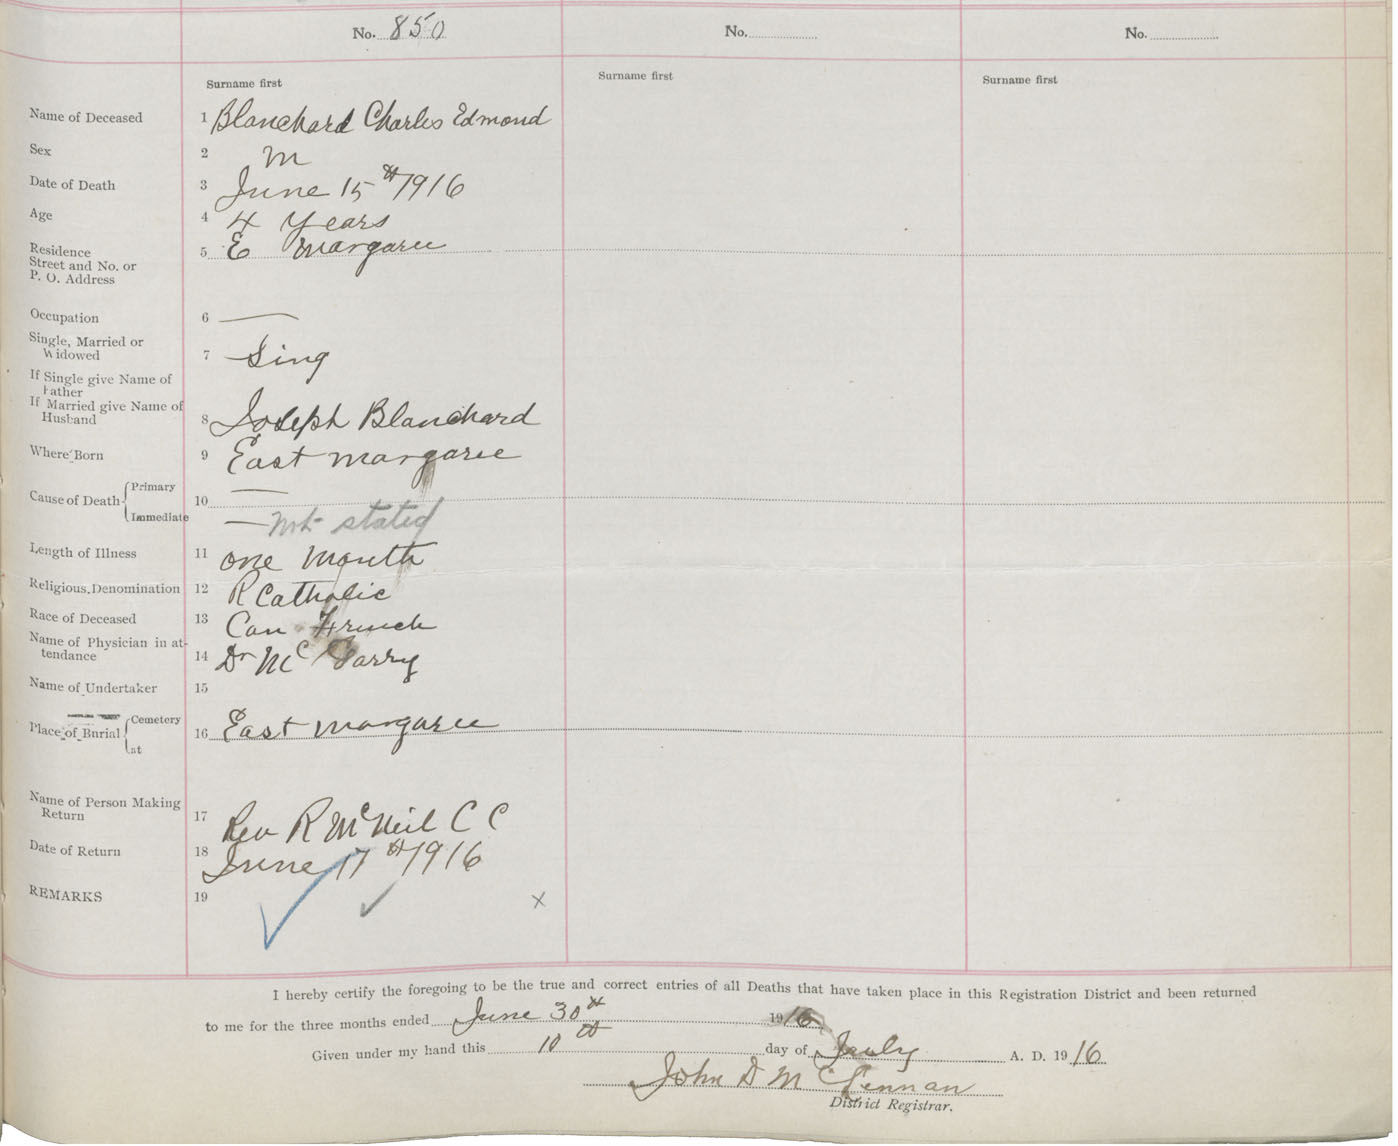 No. 850 No. No.
Surname first Surname first Surname first
Name of Deceased 1 Blanchard Charles Edmond
Sex 2 M
Date of Death 3 June 15th 1916
Age 4 4 Years
Residence
Street and No. or
P. O. Address 5 E Margaree
Occupation 6 —
Single, Married or
Widowed 7 Sing
If Single give Name of
Father
If Married give Name of
Husband 8 Joseph Blanchard
Where Born 9 East Margaree
Cause of Death 10
Primary —
Immediate — Not stated
Length of Illness 11 one month
Religious Denomination 12 R Catholic
Race of Deceased 13 Can French
Name of Physician in at-
tendance 14 Dr McGarry
Name of Undertaker 15
Place of Burial 16 East Margaree
Cemetery
at
Name of Person Making
Return 17 Rev R McNeil C C
Date of Return 18 June 17th 1916
REMARKS 19
✓ ✓ x
I hereby certify the foregoing to be the true and correct entries of all Deaths that have taken place in this Registration District and been returned
to me for the three months ended June 30th 1916
Given under my hand this 10th day of July A. D. 1916
John D McLennan
District Registrar.